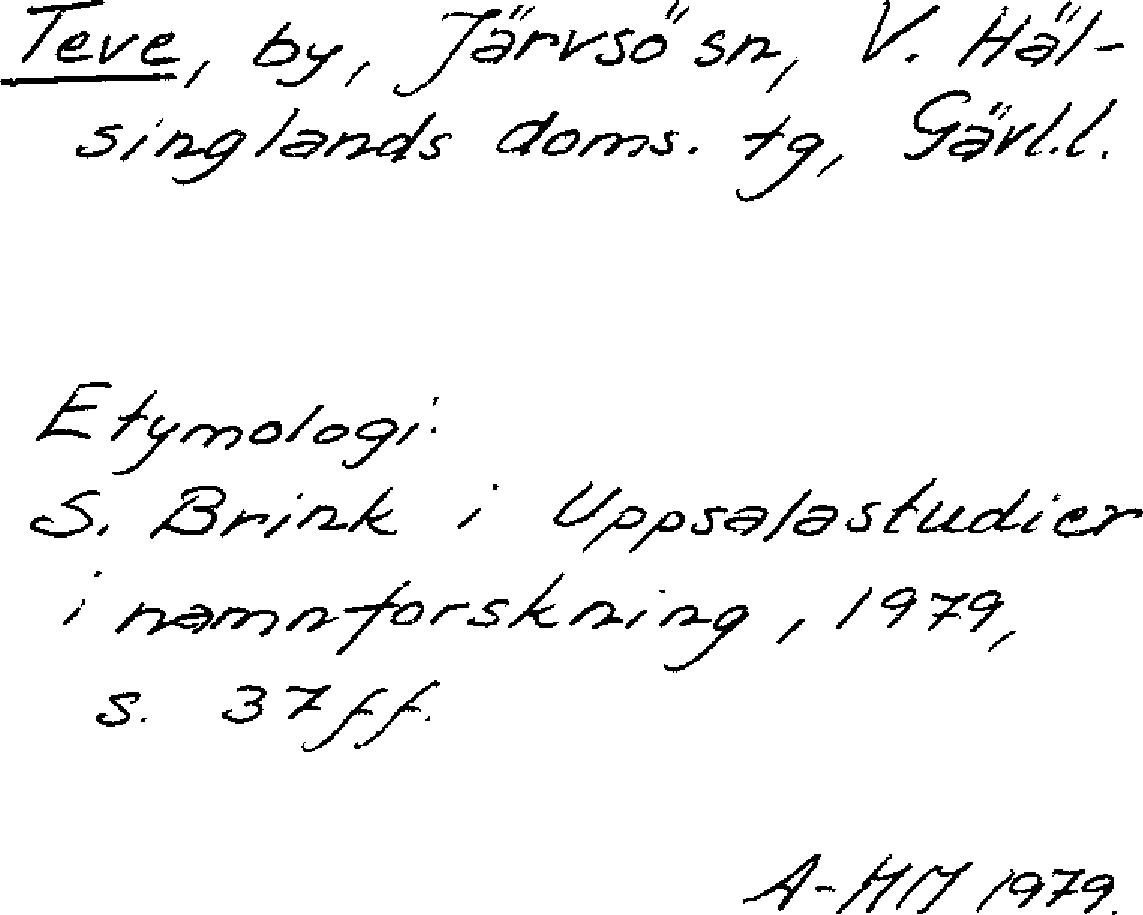 Teve, by, Järvsö sn, V. Häl-
singlands doms. tg, Gävl.l.
Etymologi:
S. Brink i Uppsalastudier
i namnforskning, 1979,
s. 37 ff.
A-HM 1979.